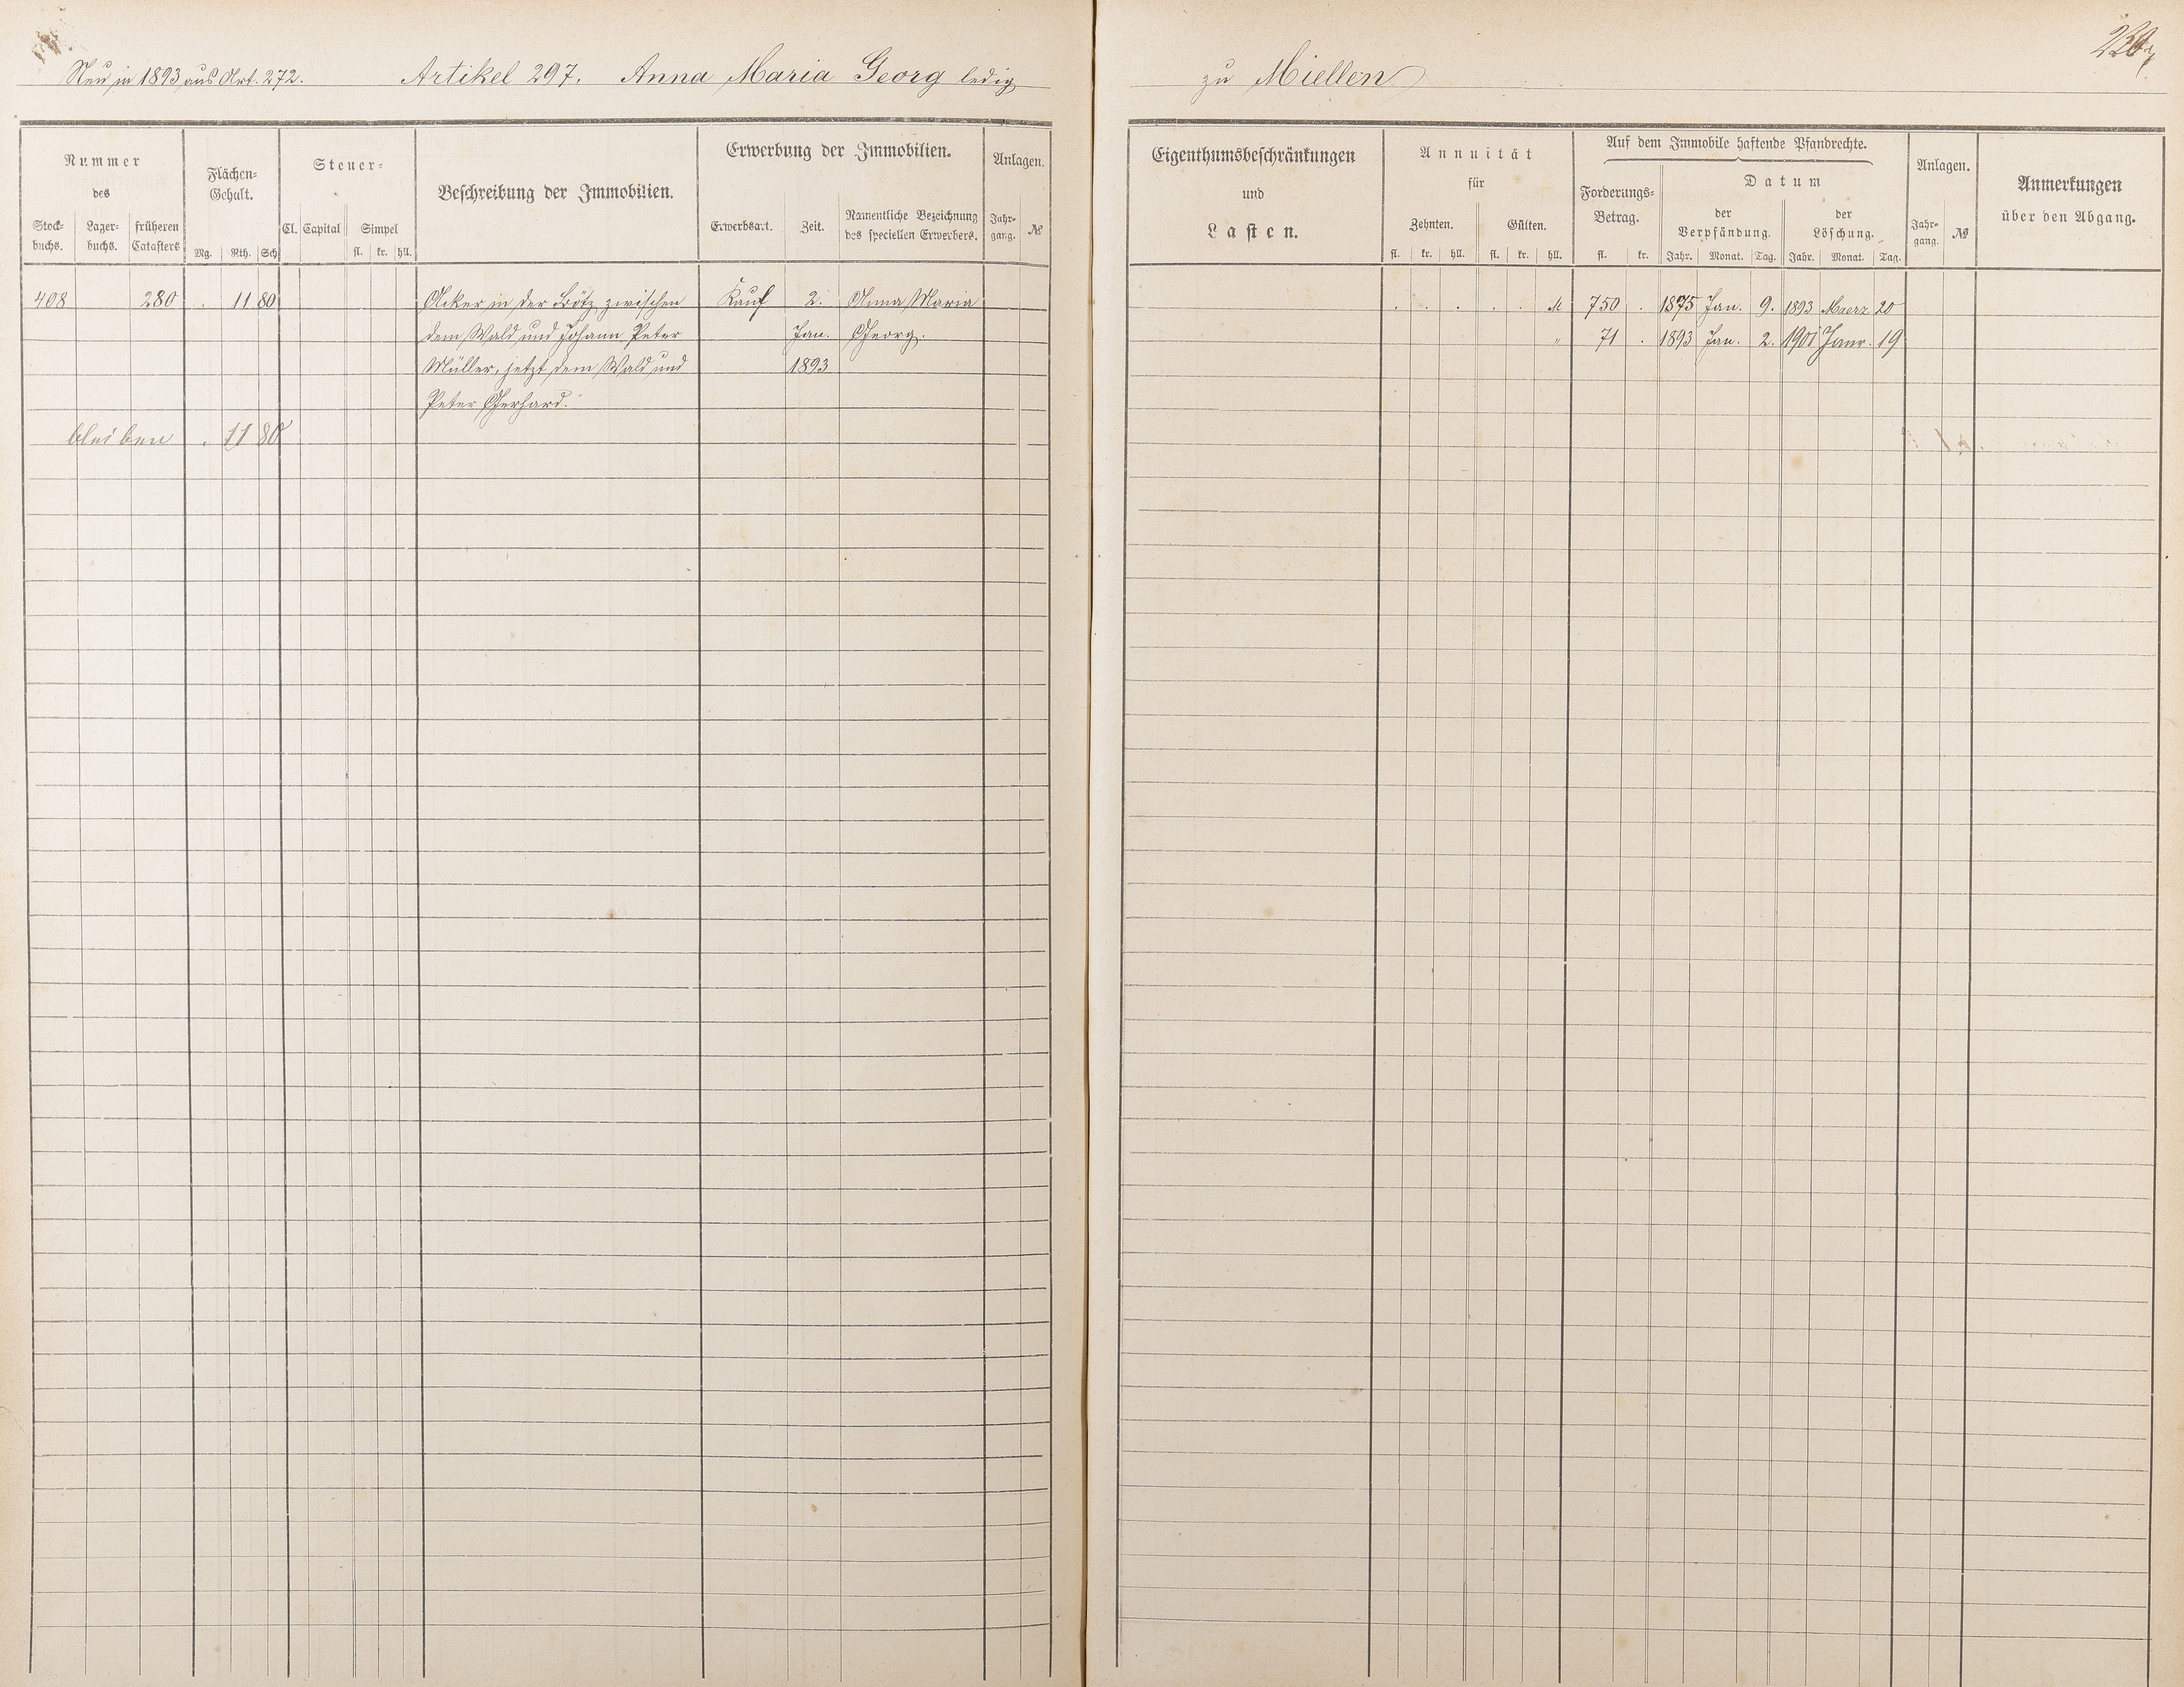 Neu in 1893 aus Art. 272. Artikel 297. Anna Maria Georg ledig zu Miellen
Nummer des
Stock-buchs. Lager-buchs. früheren Catasters
Flächen-Gehalt.
Mg. Rth. Sch
Steuer-
Cl. Capital Simpel
fl. kr. hll.
Beschreibung der Immobilien.
Erwerbung der Immobilien.
Erwerbsart. Zeit. Namentliche Bezeichnung des speciellen Erwerbers.
Anlagen.
Jahr-gang. №
408 280 . 11 80 Acker in der Bötz zwischen Kauf 2. Anna Maria
dem Wald und Johann Peter Jan. Georg.
Müller, jetzt dem Wald und 1893
Peter Gerhard.
bleiben . 11 80
Eigenthumsbeschränkungen
und
Lasten.
Annuität
für
Zehnten. Gülten.
fl. kr. hll. fl. kr. hll.
Auf dem Immobile haftende Pfandrechte.
Forderungs-Betrag.
fl. kr.
Datum
der Verpfändung. der Löschung.
Jahr. Monat. Tag. Jahr. Monat. Tag.
Anlagen.
Jahr-gang. №
Anmerkungen
über den Abgang.
. . . . . M 750 . 1875 Jan. 9. 1893 Maerz 20
" 71 . 1893 Jan. 2. 1901 Janr. 19